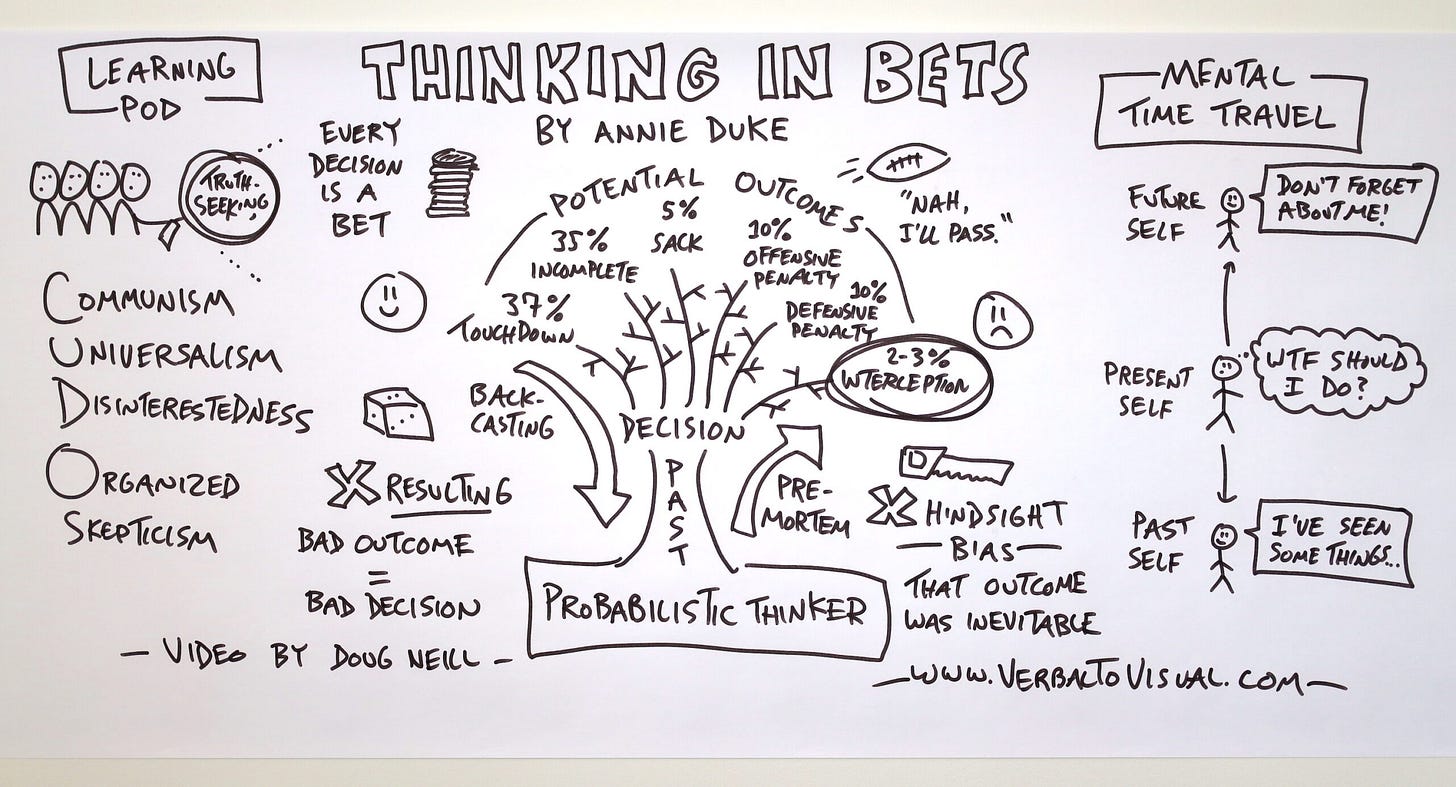 THINKING IN BETS
BY ANNIE DUKE
LEARNING
POD
TRUTH-
SEEKING
COMMUNISM
UNIVERSALISM
DISINTERESTEDNESS
ORGANIZED
SKEPTICISM
EVERY
DECISION
IS A
BET
X RESULTING
BAD OUTCOME
=
BAD DECISION
POTENTIAL OUTCOMES
37%
TOUCHDOWN
35%
INCOMPLETE
5%
SACK
10%
OFFENSIVE
PENALTY
10%
DEFENSIVE
PENALTY
2-3%
INTERCEPTION
"NAH,
I'LL PASS."
BACK-
CASTING
DECISION
PAST
PRE-
MORTEM
PROBABILISTIC THINKER
X HINDSIGHT
BIAS
THAT OUTCOME
WAS INEVITABLE
MENTAL
TIME TRAVEL
FUTURE
SELF
DON'T FORGET
ABOUT ME!
PRESENT
SELF
WTF SHOULD
I DO?
PAST
SELF
I'VE SEEN
SOME THINGS...
- VIDEO BY DOUG NEILL -
- WWW.VERBALTOVISUAL.COM -